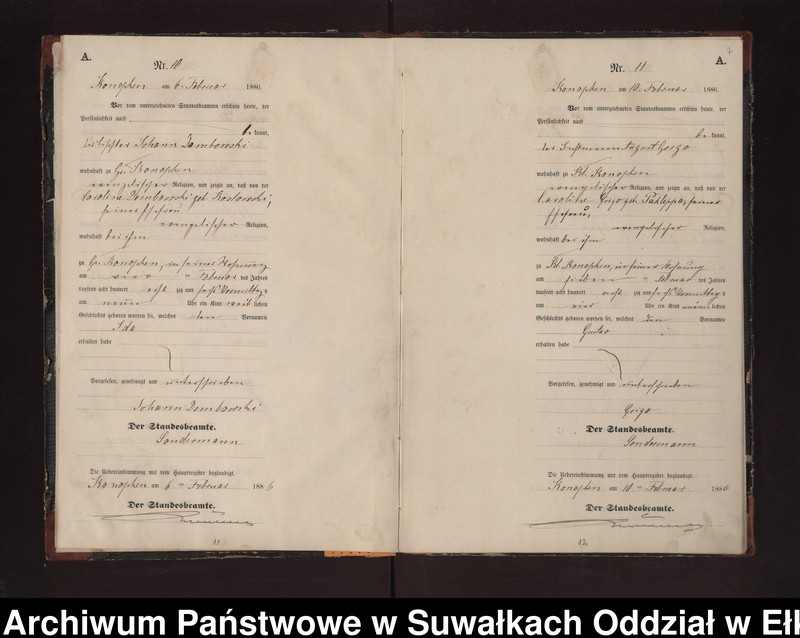 A.
Nr. 10
Konopken am 6. Februar 1886
Vor dem unterzeichneten Standesbeamten erschien heute, der
Persönlichkeit nach
be kannt,
Johann Dembowski
wohnhaft zu Gr. Konopken
Religion, und zeigte an, daß von der
Caroline Dembowski geb. Koslowski,
seiner Ehefrau
evangelischer Religion,
wohnhaft bei ihm
zu Gr. Konopken, in seiner Wohnung
am Februar des Jahres
tausend acht hundert acht zig und sechs Vormittags
um neun Uhr ein Kind weib lichen
Geschlechts geboren worden sei, welches den Vornamen
Ida
erhalten habe
Vorgelesen, genehmigt und unterschrieben
Johann Dembowski
Der Standesbeamte.
Sondermann
Die Uebereinstimmung mit dem Hauptregister beglaubigt
Konopken am 6 ten Februar 1886
Der Standesbeamte.
11
7
A.
Nr. 11
Konopken am 10. Februar 1886
Vor dem unterzeichneten Standesbeamten erschien heute, der
Persönlichkeit nach
be kannt,
der August Grigo
wohnhaft zu Kl. Konopken
evangelischer Religion, und zeigte an, daß von der
Caroline Grigo geb. seiner
Ehefrau,
evangelischer Religion,
wohnhaft bei ihm
zu Kl. Konopken, in seiner Wohnung
am sieben Februar des Jahres
tausend acht hundert acht zig und sechs Vormittags
um vier Uhr ein Kind männ lichen
Geschlechts geboren worden sei, welches den Vornamen
Gustav
erhalten habe
Vorgelesen, genehmigt und unterschrieben
Grigo
Der Standesbeamte.
Sondermann
Die Uebereinstimmung mit dem Hauptregister beglaubigt
Konopken am 10 ten Februar 1886
Der Standesbeamte.
12
Archiwum Państwowe w Suwałkach Oddział w Ełk